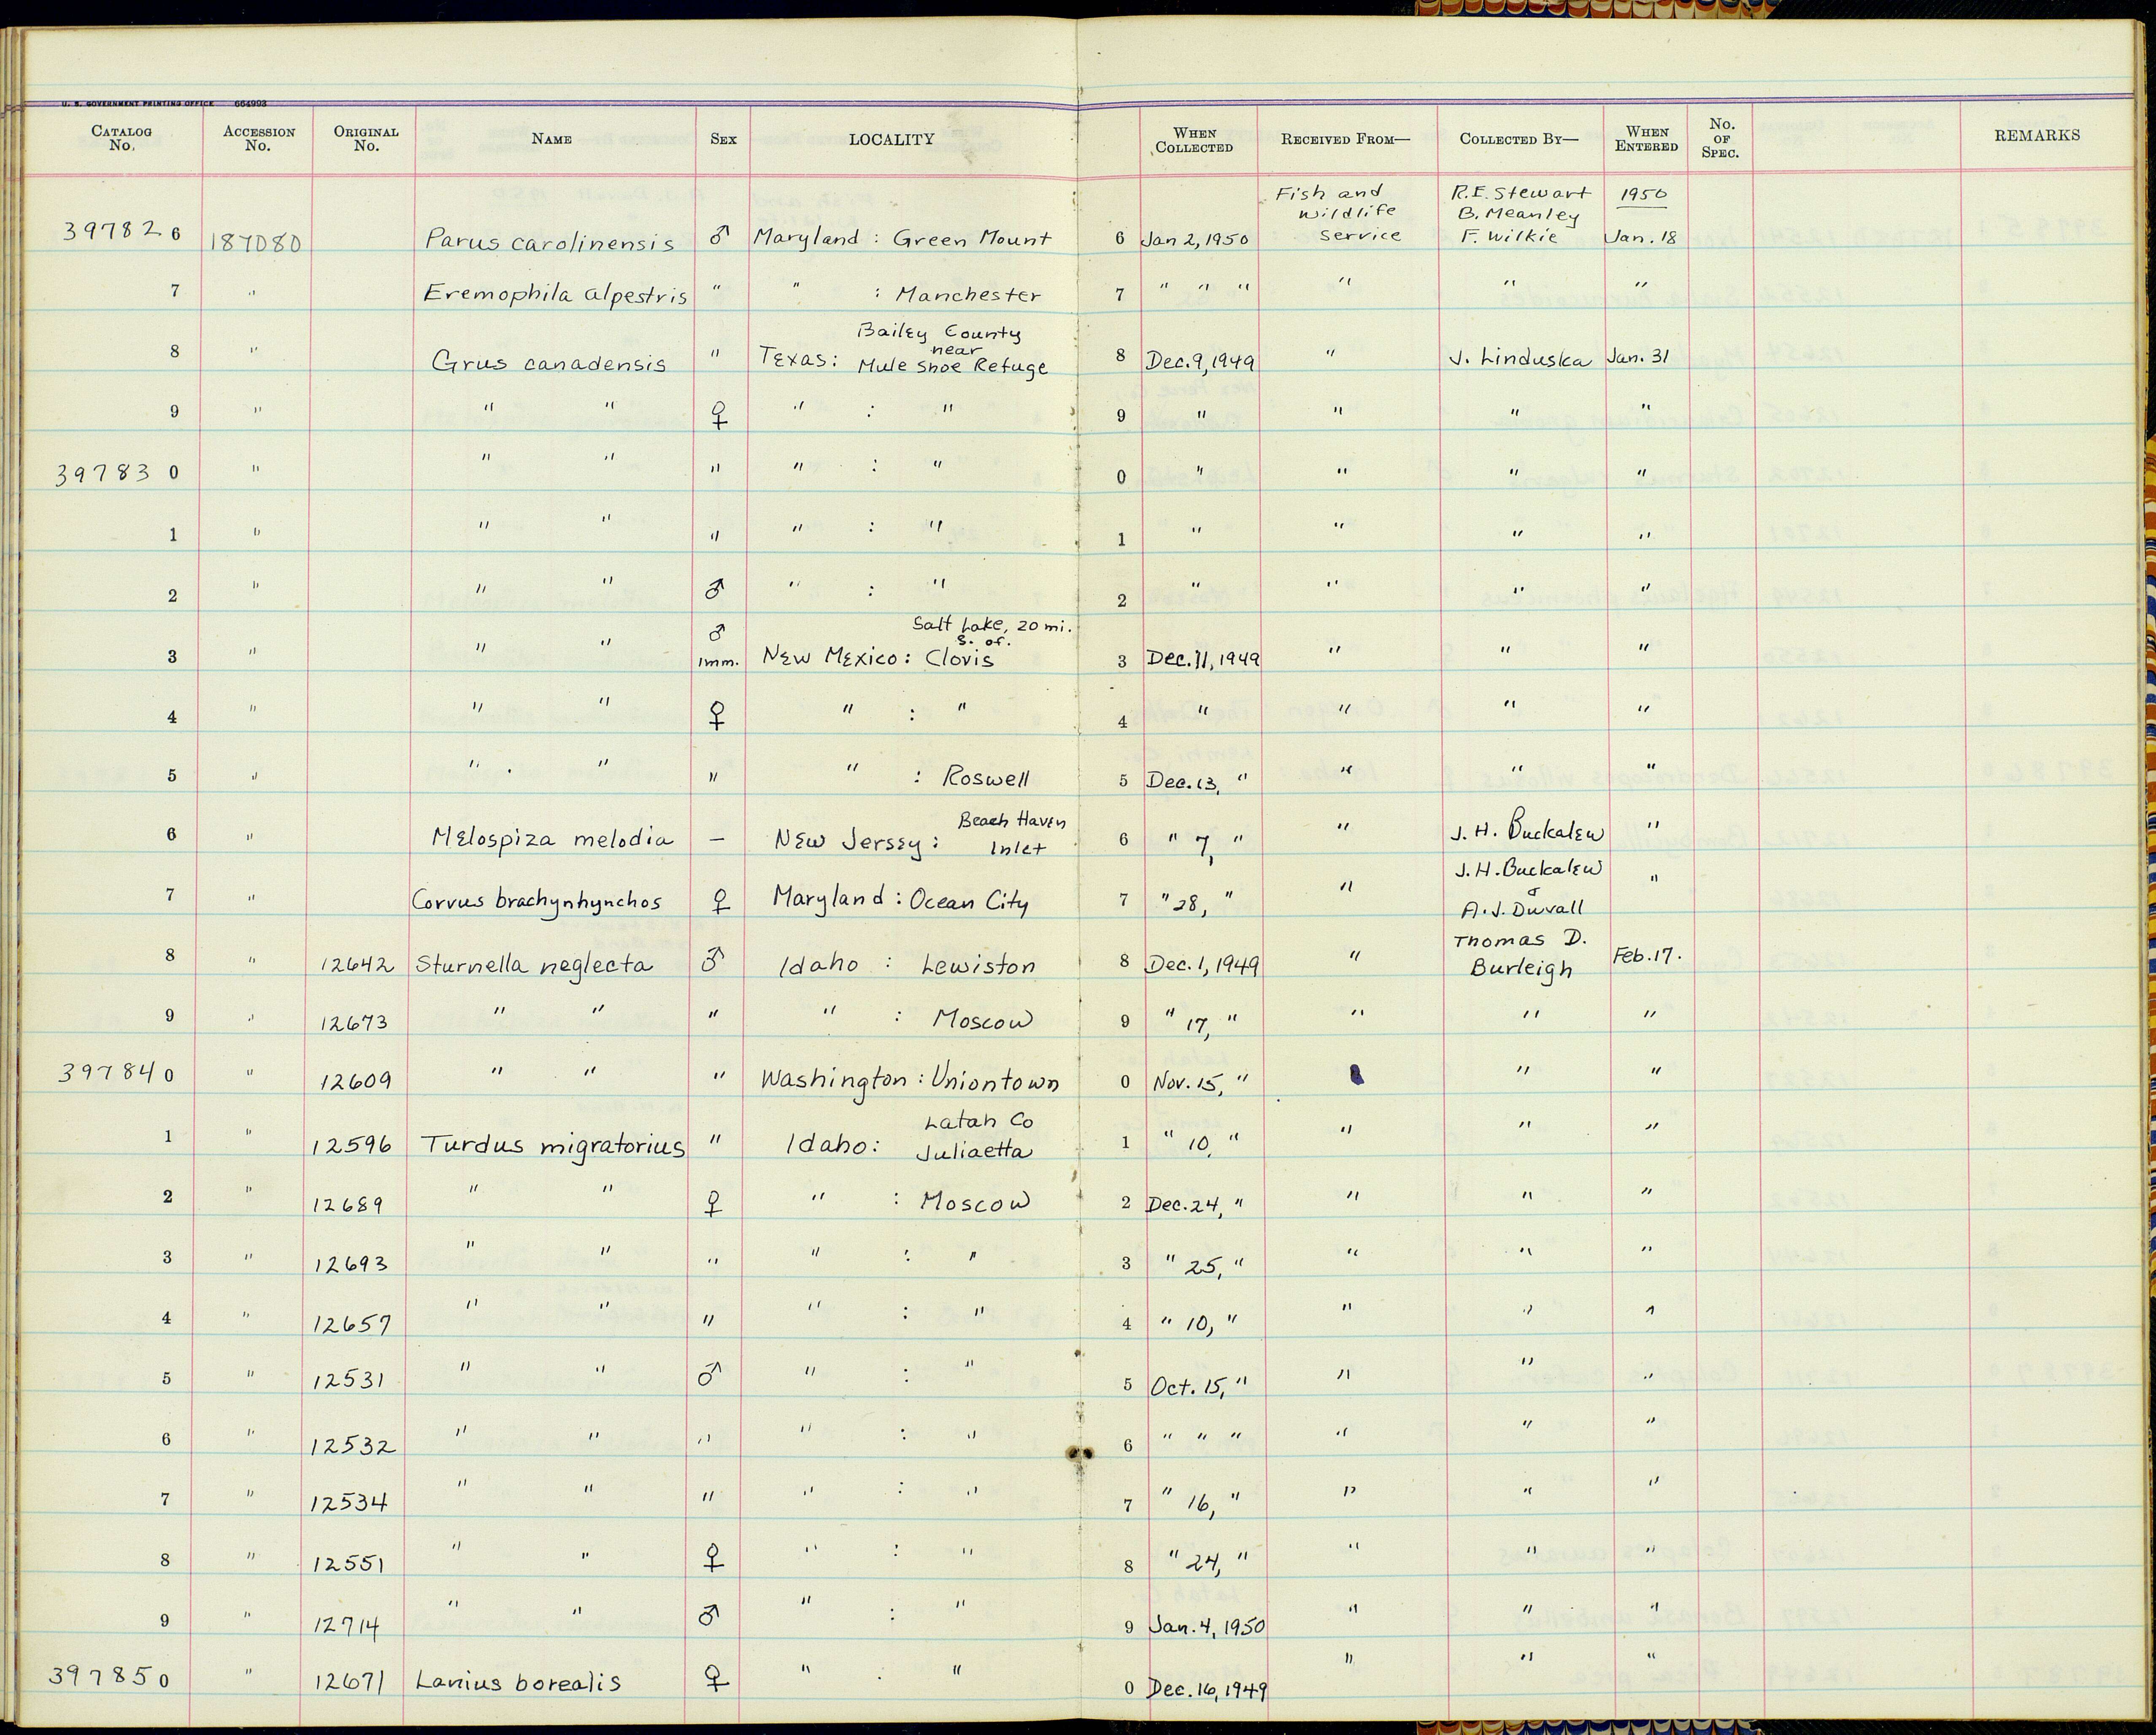 U. S. GOVERNMENT PRINTING OFFICE 664993
CATALOG No. ACCESSION No. ORIGINAL No. NAME SEX LOCALITY WHEN COLLECTED RECEIVED FROM— COLLECTED BY— WHEN ENTERED No. OF SPEC. REMARKS
39782 6 187080 Parus carolinensis ♂ Maryland : Green Mount 6 Jan 2, 1950 Fish and Wildlife Service R.E. Stewart B. Meanley F. Wilkie 1950 Jan. 18
7 " Eremophila alpestris " " : Manchester 7 " " " " " "
8 " Grus canadensis " Texas: Bailey County near Mule Shoe Refuge 8 Dec. 9, 1949 " J. Linduska Jan. 31
9 " " " ♀ " : " 9 " " " "
39783 0 " " " " " : " 0 " " " "
1 " " " " " : " 1 " " " "
2 " " " ♂ " : " 2 " " " "
3 " " " ♂ Imm. New Mexico: Salt Lake, 20 mi. S. of. Clovis 3 Dec. 11, 1949 " " "
4 " " " ♀ " : " 4 " " " "
5 " " " " " : Roswell 5 Dec. 13, " " " "
6 " Melospiza melodia — New Jersey: Beach Haven Inlet 6 " 7, " " J. H. Buckalew "
7 " Corvus brachynhynchos ♀ Maryland : Ocean City 7 " 28, " " J. H. Buckalew & A. J. Duvall "
8 " 12642 Sturnella neglecta ♂ Idaho : Lewiston 8 Dec. 1, 1949 " Thomas D. Burleigh Feb. 17.
9 " 12673 " " " " : Moscow 9 " 17, " " " "
39784 0 " 12609 " " " Washington : Uniontown 0 Nov. 15, " " "
1 " 12596 Turdus migratorius " Idaho: Latah Co Juliaetta 1 " 10, " " " "
2 " 12689 " " ♀ " : Moscow 2 Dec. 24, " " " "
3 " 12693 " " " " : " 3 " 25, " " " "
4 " 12657 " " " " : " 4 " 10, " " " "
5 " 12531 " " ♂ " : " 5 Oct. 15, " " " "
6 " 12532 " " " " : " 6 " " " " " "
7 " 12534 " " " " : " 7 " 16, " " " "
8 " 12551 " " ♀ " : " 8 " 24, " " " "
9 " 12714 " " ♂ " : " 9 Jan. 4, 1950 " " "
39785 0 " 12671 Lanius borealis ♀ " : " 0 Dec. 16, 1949 " " "